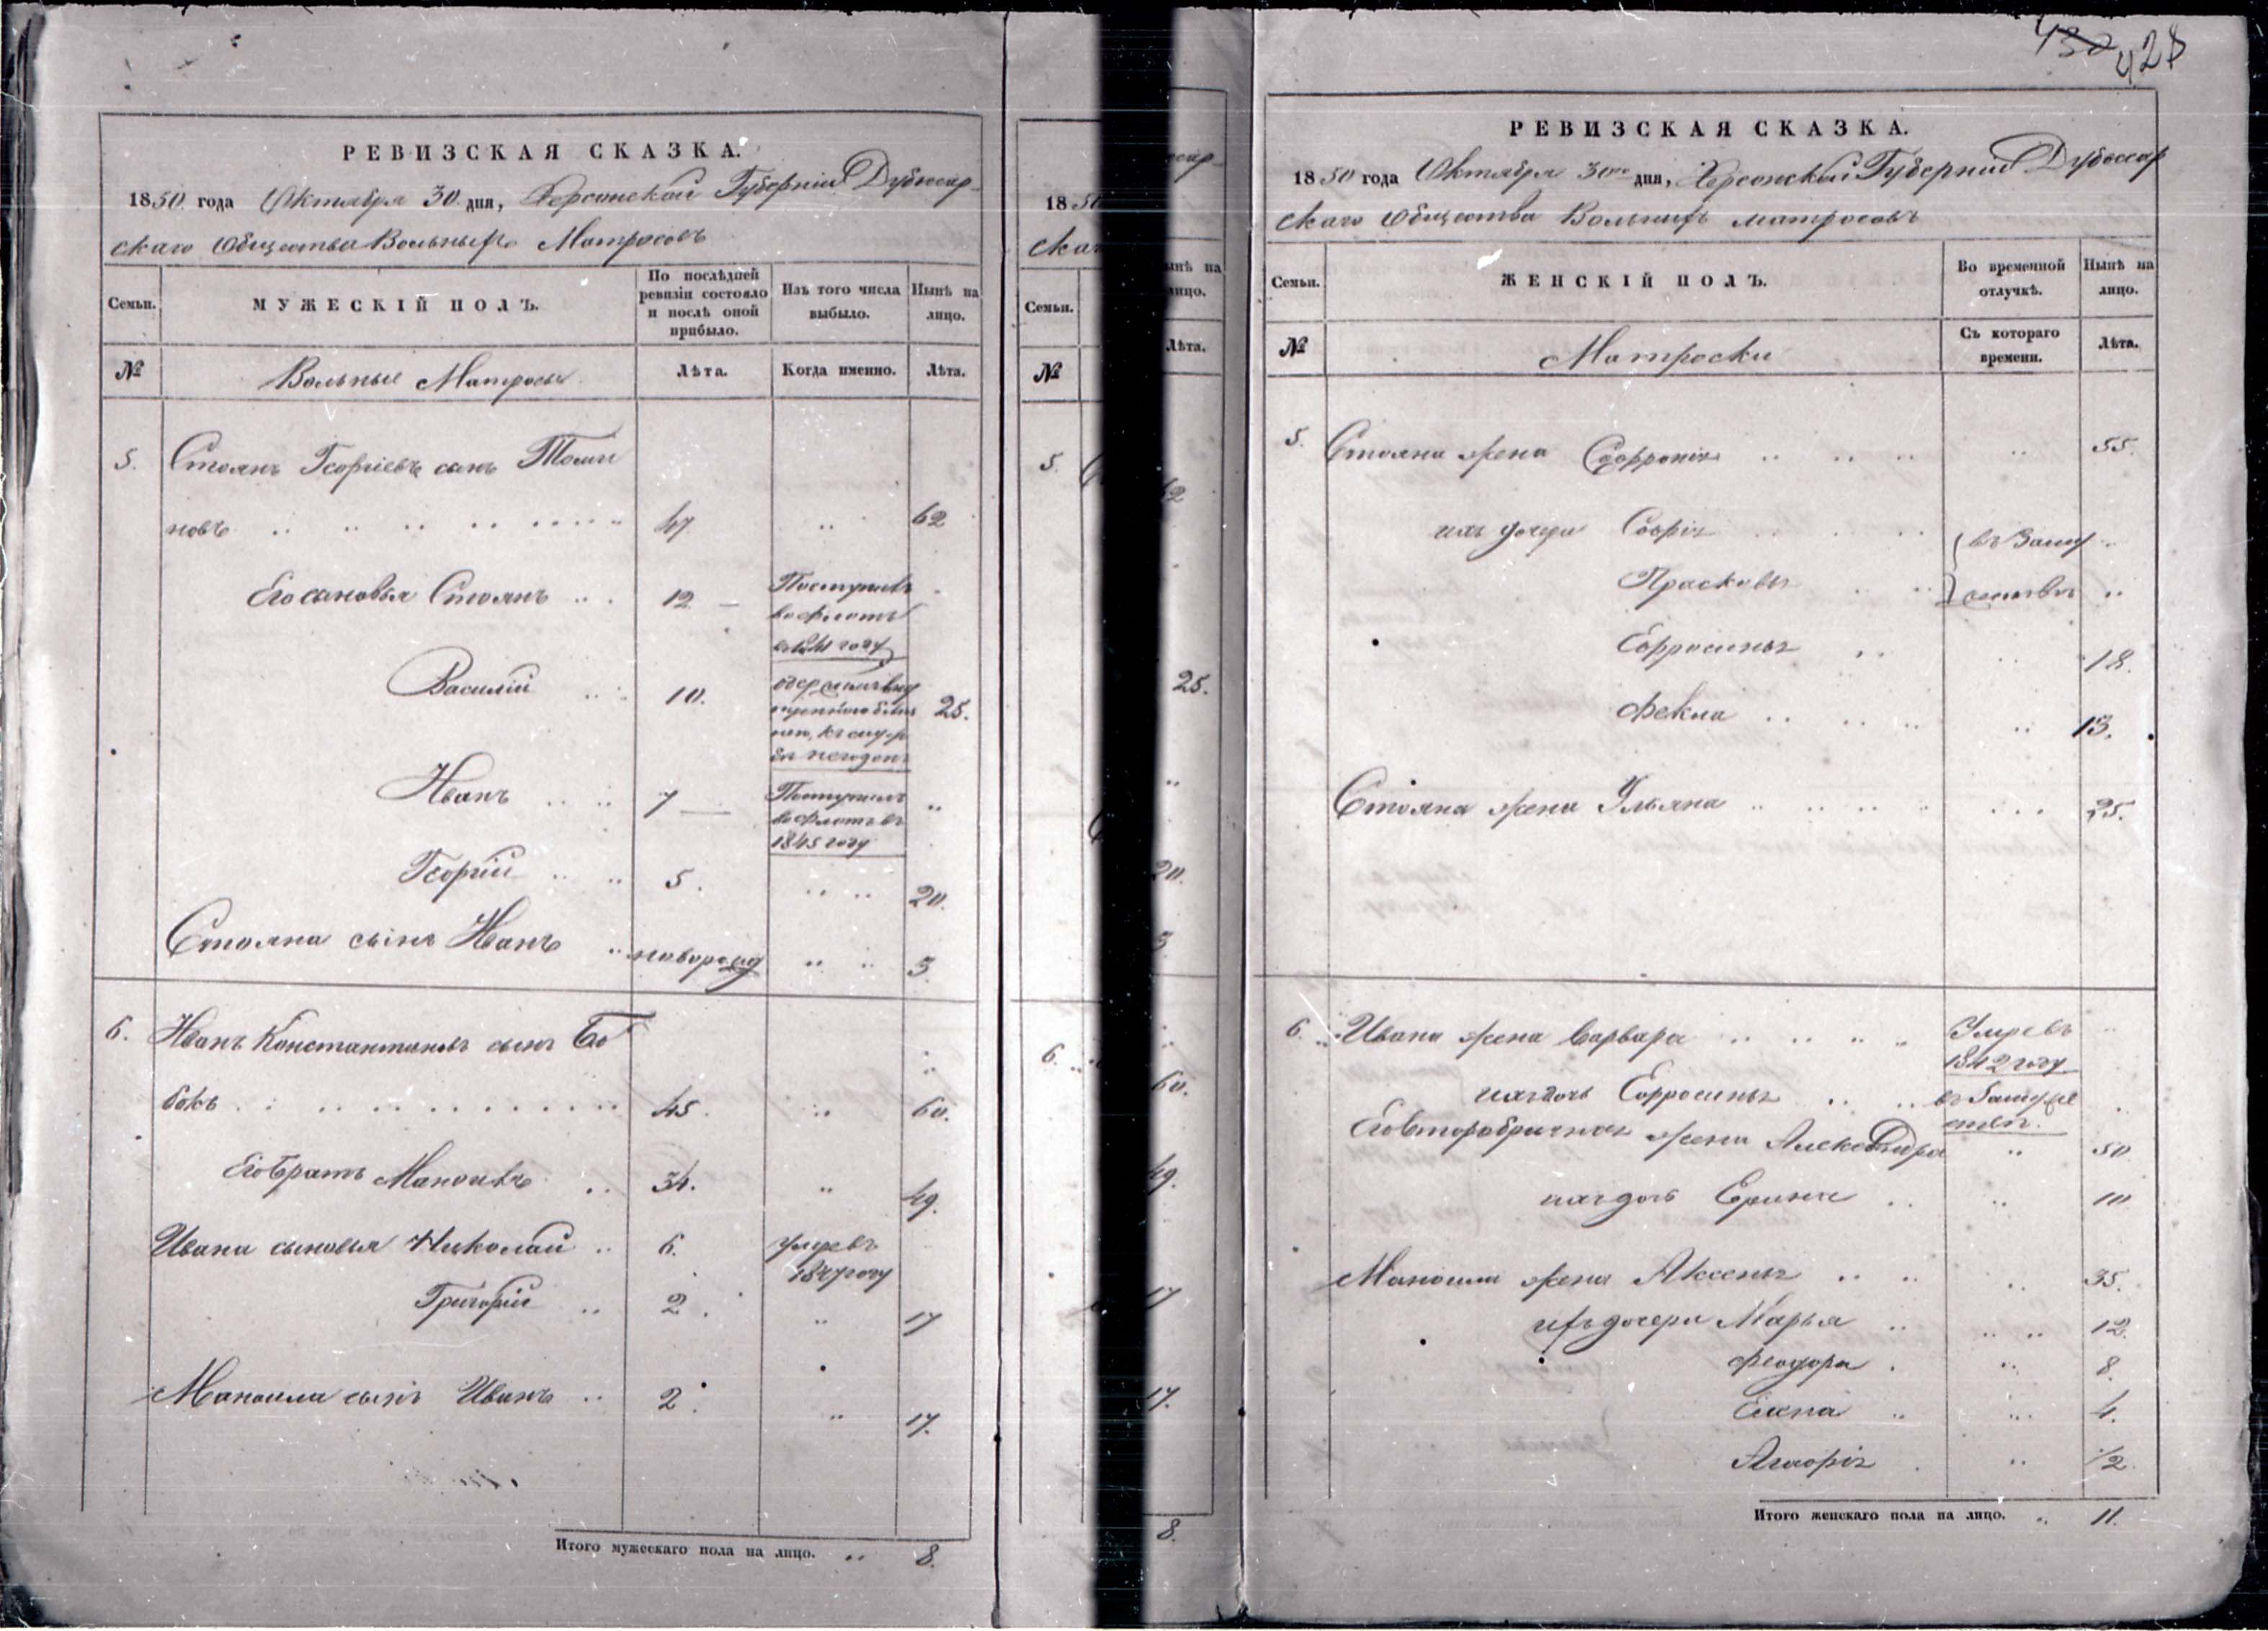 РЕВИЗСКАЯ СКАЗКА.
1850 года Октября 30 дня, Херсонской Губерніи Дубоссар-
скаго Общества Вольныхъ Матросовъ
Семьи.
МУЖЕСКІЙ ПОЛЪ.
По послѣдней ревизіи состояло и послѣ оной прибыло.
Изъ того числа выбыло.
Нынѣ на лицо.
№
Вольные Матросы
Лѣта.
Когда именно.
Лѣта.
5. Стоянъ Георгіевъ сынъ
новъ 47 62
Его сыновья Стоянъ 12 Поступилъ
во флотъ
году
Василій 10. 25.
Иванъ 7 Поступилъ
во флотъ въ
1845 году
Георгій 5. 20.
Стояна сынъ Иванъ новорожд 3.
6. Иванъ Константиновъ сынъ Бо
бокъ 45. 60.
Его братъ Маноилъ 34. 49.
Ивана сыновья Николай 6. умре въ
1847 году
Григорій 2. 17
Маноила сынъ Иванъ 2. 17.
Итого мужескаго пола на лицо. 8.
1850
скаг
Семьи.
№
5.
6.
сар-
ынѣ на
лицо.
Лѣта.
62
25.
20.
3.
60.
49.
17
17.
8.
430 428
РЕВИЗСКАЯ СКАЗКА.
1850 года Октября 30го дня, Херсонской Губерніи Дубоссар
скаго Общества Вольныхъ матросовъ
Семьи.
ЖЕНСКІЙ ПОЛЪ.
Во временной отлучкѣ.
Нынѣ на лицо.
№
Матроски
Съ котораго времени.
Лѣта.
5. Стояна жена Софронія 55.
ихъ дочери Софія въ Заму
Прасковья
Ефросинья 18.
Фекла 13.
Стояна жена Ульяна 25.
6. Ивана жена Варвара Умре въ
1842 году
ихъ дочь Ефросинья въ Замуже
ствѣ.
Его второбрачная жена Александра 50
ихъ дочь Ерина 10
Маноила жена Аксенья 35.
ихъ дочери Марья 12.
Феодора 8.
Елена 4.
1/2
Итого женскаго пола на лицо. 11.